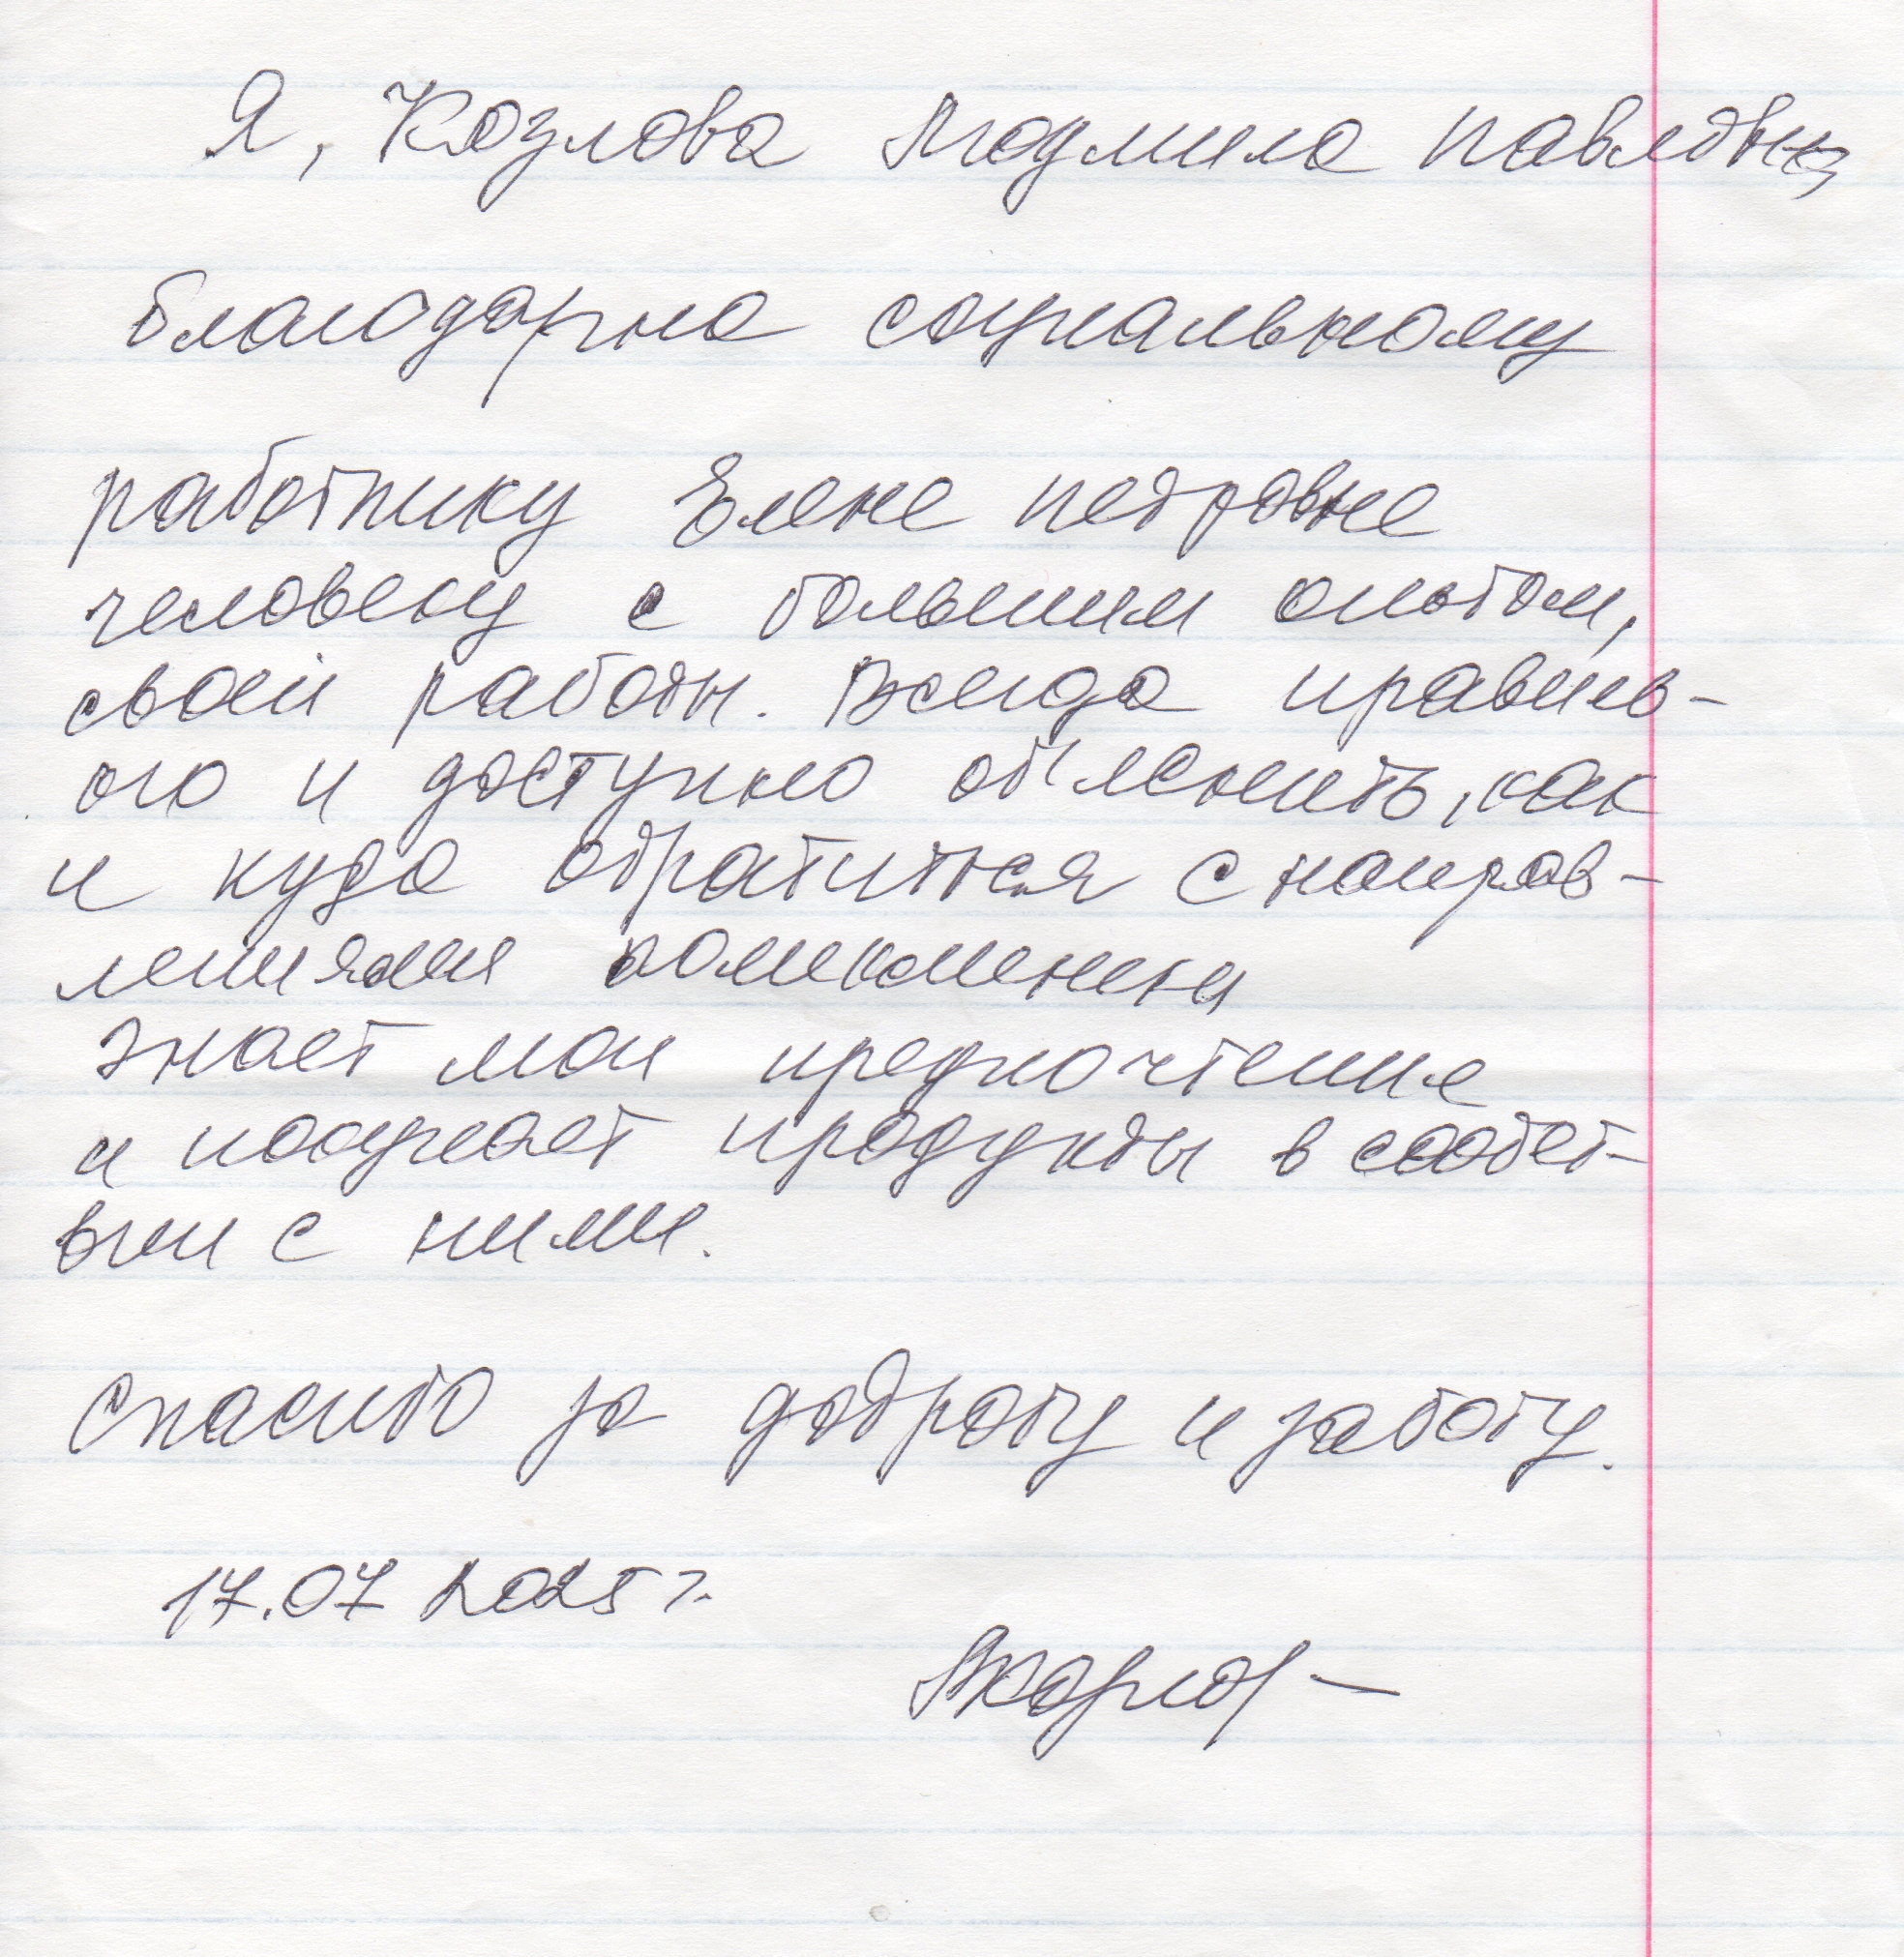 Я, Козлова Людмила Павловна
благодарна социальному
работнику Елене Петровне
человеку с большим опытом,
своей работы. Всегда правиль-
но и доступно объяснить, как
и куда обратиться с направ-
лениями
знает мои предпочтения
и покупает продукты в соответ-
вии с ними.
Спасибо за доброту и заботу.
17.07 2025 г.